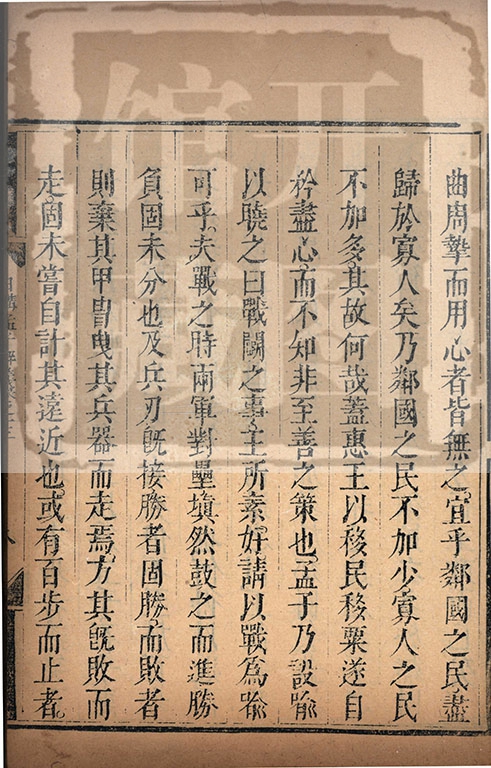 曲周摯而用心者皆無之宜乎鄰國之民盡
歸於寡人矣乃鄰國之民不加少寡人之民
不加多其故何哉蓋惠王以移民移粟遂自
矜盡心而不知非至善之策也孟子乃設喻
以曉之曰戰鬬之事王所素好請以戰為喻
可乎夫戰之時兩軍對壘填然鼓之而進勝
負固未分也及兵刃既接勝者固勝而敗者
則棄其甲冑曳其兵器而走焉方其既敗而
走固未嘗自計其遠近也或有百步而止者